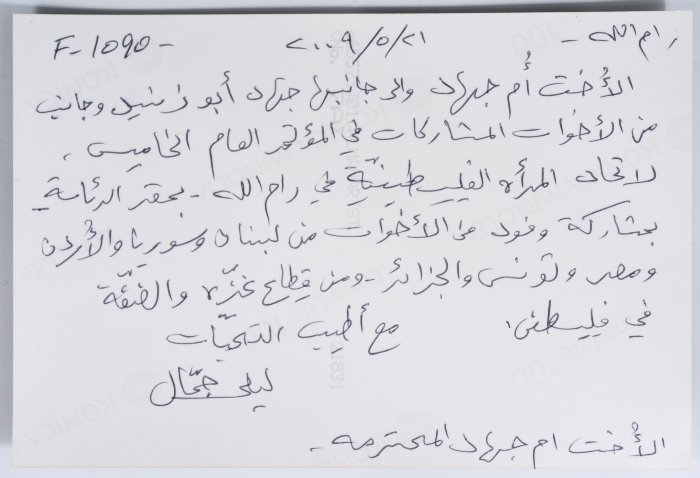 رام الله - ٢٠٠٩/٥/٢١ F-1090-
الأُخت أُم جهاد والى جانبها جهاد أبو زنيد وجانب
من الأخوات المشاركات في المؤتمر العام الخامس،
لاتحاد المرأه الفلسطينيّة في رام الله - بمقر الرئاسة
بمشاركة وفود من الأخوات من لبنان وسوريا والأُردن
ومصر وتونس والجزائر - ومن قِطاع غزّه والضفّة
في فلسطين، مع أطيب التحيّات
ليلى جمّال
الأُخت ام جهاد المحترمه -